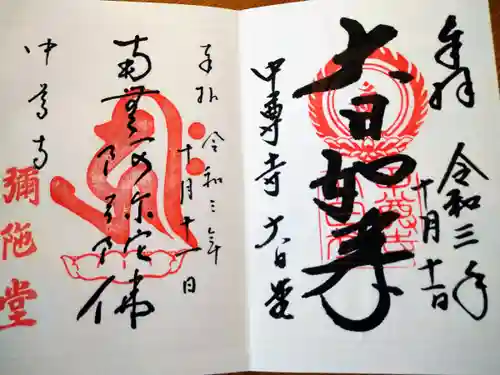 奉拝
令和三年
十月十一日
大日如来
中尊寺 大日堂
奉拝
令和三年
十月十一日
南無阿弥陀佛
中尊寺
彌陀堂